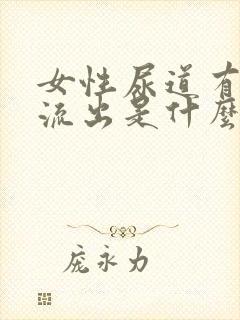 女性尿道有
流出是什麼
庞永力